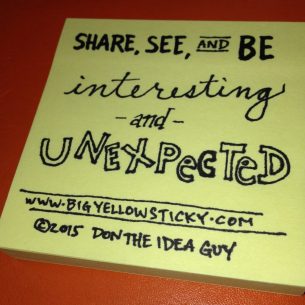 SHARE, SEE, AND BE
interesting
-and-
UNEXPECTED
WWW.BIGYELLOWSTICKY.COM
©2015 DON THE IDEA GUY